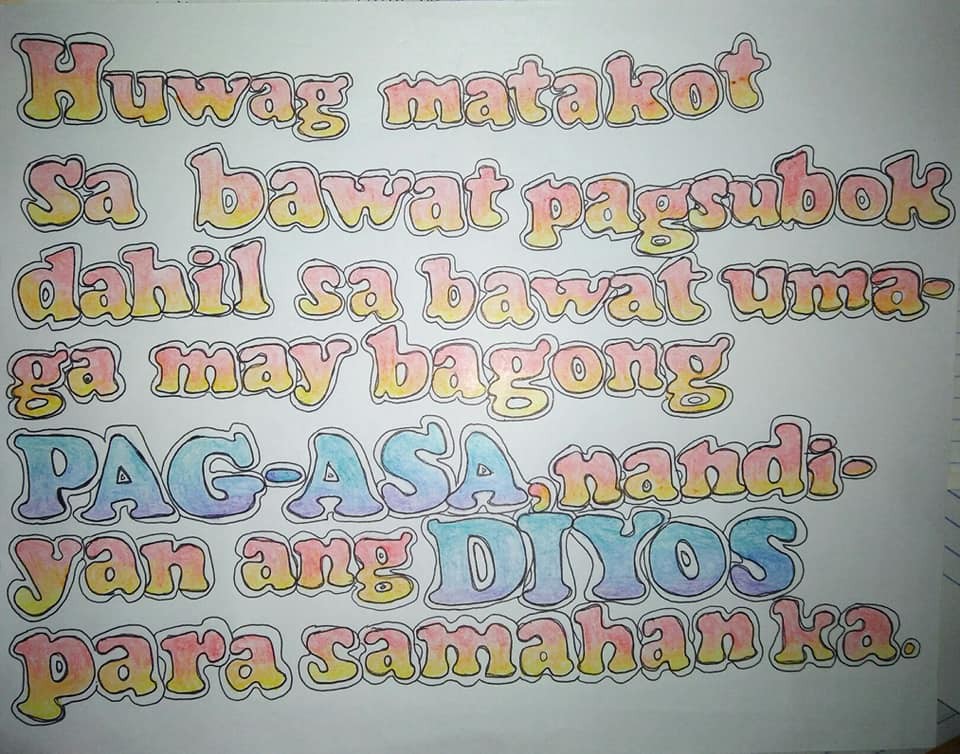 Huwag matakot
sa bawat pagsubok
dahil sa bawat uma-
ga may bagong
PAG-ASA, nandi-
yan ang DIYOS
para samahan ka.